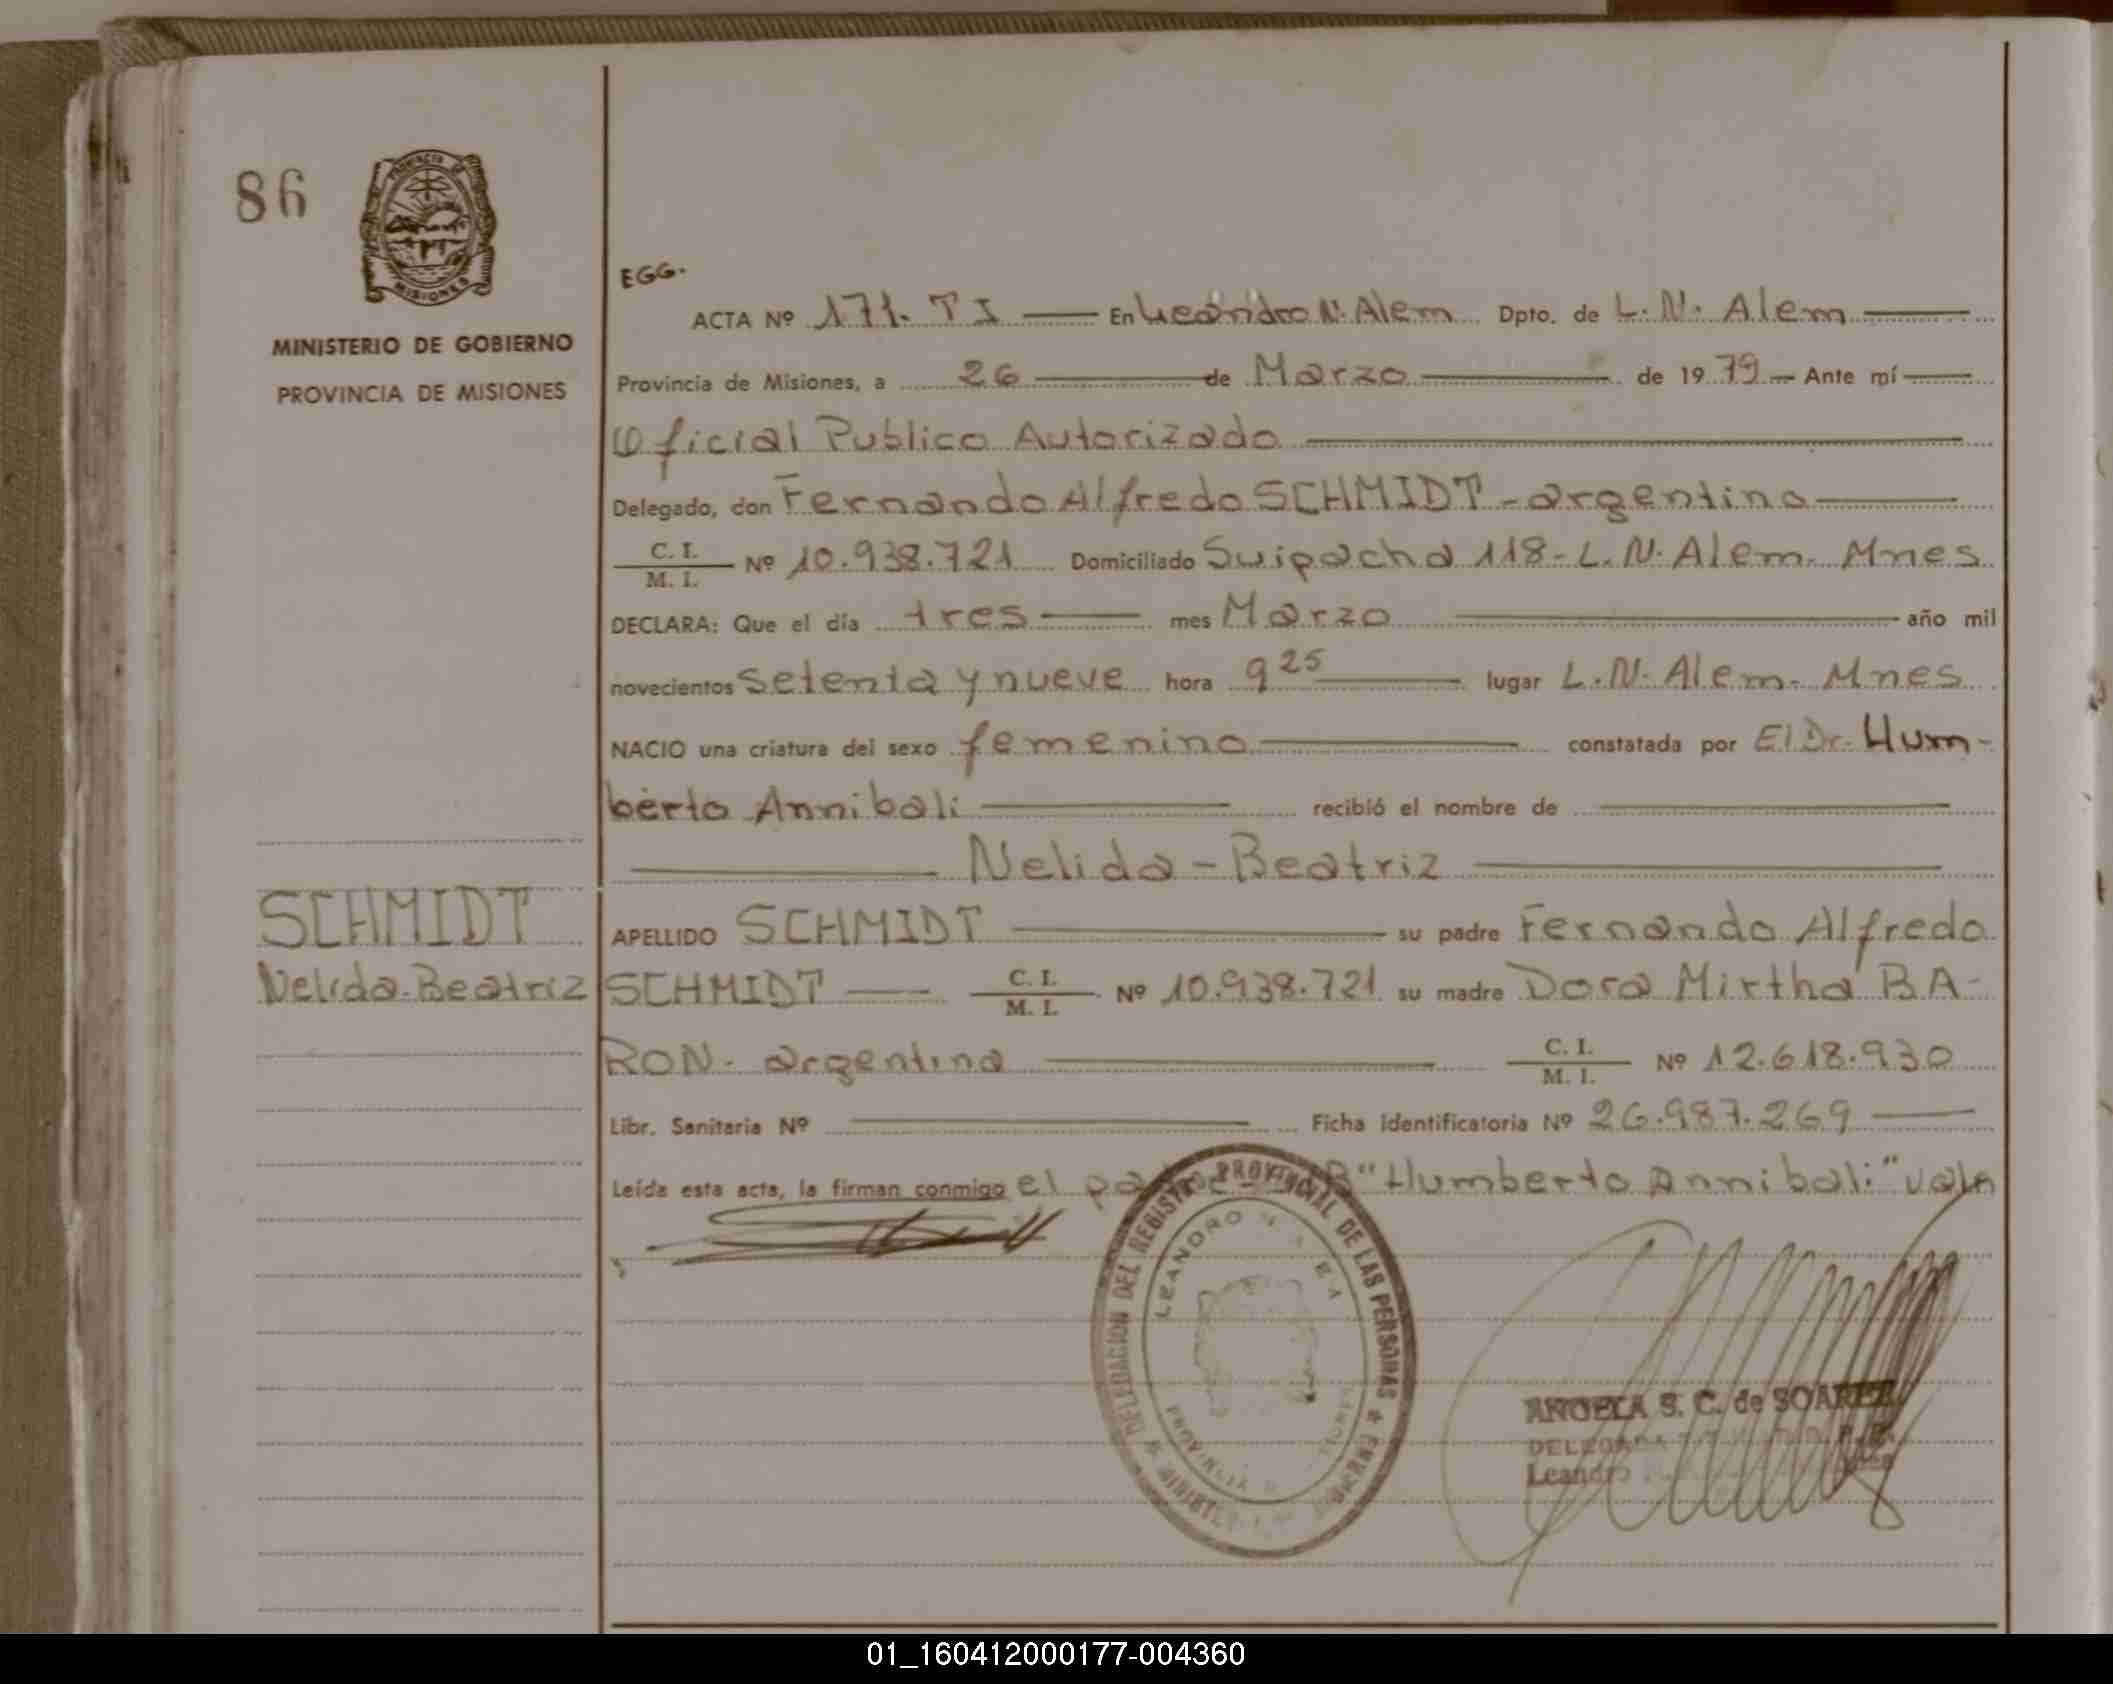 86
PROVINCIA DE
MISIONES
MINISTERIO DE GOBIERNO
PROVINCIA DE MISIONES
SCHMIDT
Nelida-Beatriz
EGG.
ACTA Nº 171. T I En Leandro N. Alem Dpto. de L. N. Alem
Provincia de Misiones, a 26 de Marzo de 1979 Ante mí
Oficial Publico Autorizado
Delegado, don Fernando Alfredo SCHMIDT - argentino
C. I. / M. I. Nº 10.938.721 Domiciliado Suipacha 118-L.N. Alem. Mnes
DECLARA: Que el día tres mes Marzo año mil
novecientos setenta y nueve hora 9 25 lugar L.N. Alem. Mnes
NACIO una criatura del sexo femenino constatada por El Dr. Hum-
berto Annibali recibió el nombre de
Nelida - Beatriz
APELLIDO SCHMIDT su padre Fernando Alfredo
SCHMIDT C. I. / M. I. Nº 10.938.721 su madre Dora Mirtha BA-
RON. argentina C. I. / M. I. Nº 12.618.930
Libr. Sanitaria Nº Ficha Identificatoria Nº 26.987.269
Leída esta acta, la firman conmigo el padre "Humberto Annibali" vale
DELEGACION DEL REGISTRO PROVINCIAL DE LAS PERSONAS
LEANDRO N
PROVINCIA
ANGELA S. C. de SOAREZ